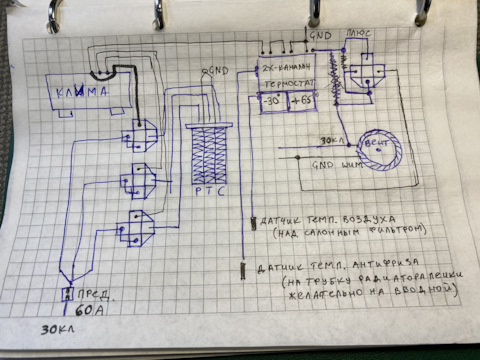 GND
ПЛЮС
2Х-КАНАЛЬН
ТЕРМОСТАТ
-30° +65
КЛИМА
GND
30КЛ
ВЕНТ
GND ШИМ
PTC
ДАТЧИК ТЕМП. ВОЗДУХА
(НАД САЛОННЫМ ФИЛЬТРОМ)
ДАТЧИК ТЕМП. АНТИФРИЗА
(НА ТРУБКУ РАДИАТОРА ПЕЧКИ
ЖЕЛАТЕЛЬНО НА ВВОДНОЙ)
ПРЕД.
60А
30КЛ